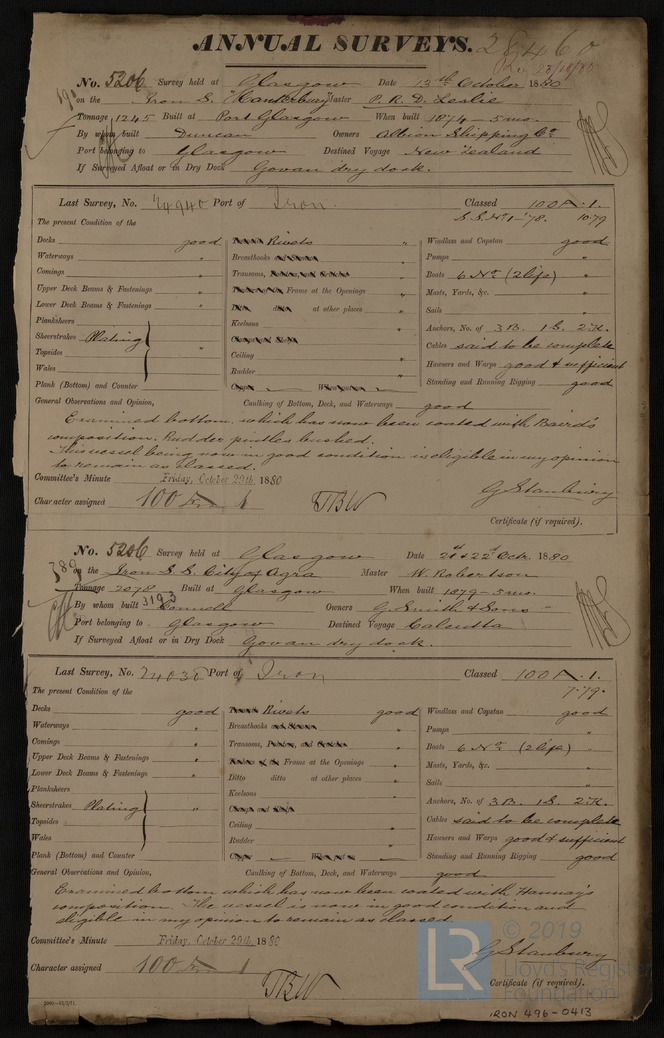 ANNUAL SURVEYS. 28460
No. 5206 Survey held at Glasgow Date 13th October 1880
on the Iron S. "Canterbury" Master P. R. D. Leslie
Tonnage 1245 Built at Port Glasgow When built 1874 - 5 mo.
By whom built Duncan Owners Albion Shipping Co.
Port belonging to Glasgow Destined Voyage New Zealand
If Surveyed Afloat or in Dry Dock Govan dry dock.
Last Survey, No. 24940 Port of Iron. Classed 100 A. 1.
S.S. No. 1 - '78. 10.79
The present Condition of the
Decks good Rivets " Windlass and Capstan good
Waterways " Breasthooks Pumps "
Comings " Transoms, Boats 6 No. (2 life) "
Upper Deck Beams & Fastenings " Frame at the Openings " Masts, Yards, &c. "
Lower Deck Beams & Fastenings " at other places " Sails "
Planksheers Keelsons " Anchors, No. of 3 B. 1 S. 2 K.
Sheerstrakes Plating " Cables said to be complete
Topsides Ceiling " Hawsers and Warps good & sufficient
Wales Rudder " Standing and Running Rigging good
Plank (Bottom) and Counter
General Observations and Opinion, Caulking of Bottom, Deck, and Waterways good
Examined bottom, which has now been coated with Baird's
composition. Rudder pintles bushed.
This vessel being now in good condition is eligible in my opinion
to remain as classed.
Committee's Minute Friday, October 29th, 1880
G Stanbury
Character assigned 100 A 1 TBW
Certificate (if required).
No. 5206 Survey held at Glasgow Date 21st & 22nd Octr. 1880
on the Iron S. S. City of Agra Master W. Robertson
Tonnage 2078 Built at Glasgow When built 1879 - 5 mo.
3193
By whom built Connell Owners G. Smith & Sons
Port belonging to Glasgow Destined Voyage Calcutta
If Surveyed Afloat or in Dry Dock Govan dry dock.
Last Survey, No. 24030 Port of Iron Classed 100 A. 1.
7.79.
The present Condition of the
Decks good Rivets good Windlass and Capstan good
Waterways " Breasthooks Pumps "
Comings " Transoms, Boats 6 No. (2 life) "
Upper Deck Beams & Fastenings " Frame at the Openings " Masts, Yards, &c. "
Lower Deck Beams & Fastenings " Ditto ditto at other places " Sails "
Planksheers Keelsons " Anchors, No. of 3 B. 1 S. 2 K.
Sheerstrakes Plating " Cables said to be complete
Topsides Ceiling " Hawsers and Warps good & sufficient
Wales Rudder " Standing and Running Rigging good
Plank (Bottom) and Counter
General Observations and Opinion, Caulking of Bottom, Deck, and Waterways good
Examined bottom which has now been coated with Hannay's
composition. The vessel is now in good condition and
eligible in my opinion to remain as classed.
Committee's Minute Friday, October 29th, 1880
G Stanbury
Character assigned 100 A 1 TBW
Certificate (if required).
LR
© 2019
Lloyd's Register
Foundation
IRON 496-0413